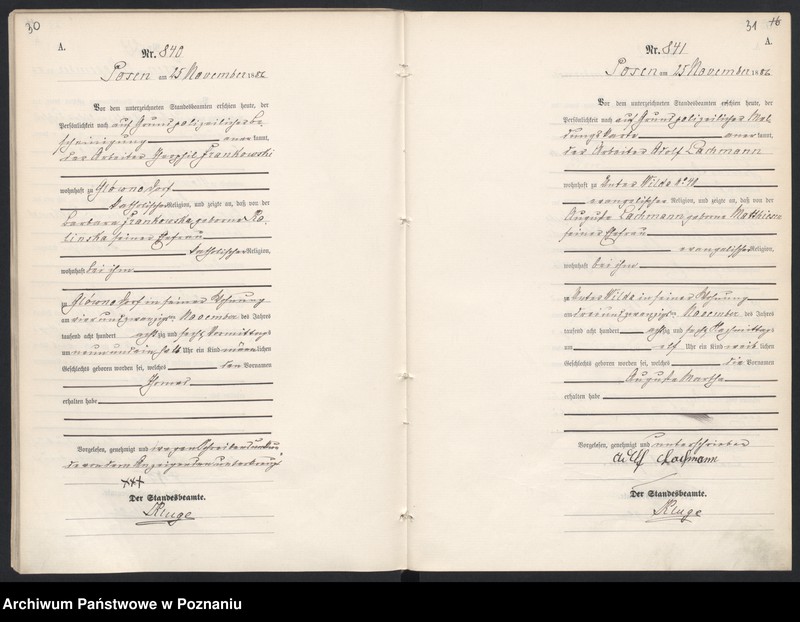 30
A.
Nr. 840
Posen am 25 November 1886
Vor dem unterzeichneten Standesbeamten erschien heute, der
Persönlichkeit nach auf Grund polizeilicher Be-
scheinigung anerkannt,
der Arbeiter Frankowski
wohnhaft zu Główno Dorf
katholischer Religion, und zeigte an, daß von der
Barbara Frankowska geborne Ka-
linska seiner Ehefrau
katholischer Religion,
wohnhaft bei ihm
zu Główno Dorf in seiner Wohnung
am vier und zwanzigsten November des Jahres
tausend acht hundert achtzig und sechs Vormittags
um neun und ein halb Uhr ein Kind männlichen
Geschlechts geboren worden sei, welches den Vornamen
Thomas
erhalten habe
Vorgelesen, genehmigt und wegen Schreibensunkun-
de von dem Anzeigenden unterkreuzt
+++
Der Standesbeamte.
31 16
A.
Nr. 841
Posen am 25 November 1886
Vor dem unterzeichneten Standesbeamten erschien heute, der
Persönlichkeit nach auf Grund polizeilicher Mel-
dungskarte anerkannt,
der Arbeiter Adolf Lachmann
wohnhaft zu Unter Wilda No
evangelischer Religion, und zeigte an, daß von der
Auguste Lachmann geborne
seiner Ehefrau
evangelischer Religion,
wohnhaft bei ihm
zu Unter Wilda in seiner Wohnung
am drei und zwanzigsten November des Jahres
tausend acht hundert achtzig und sechs Nachmittags
um elf Uhr ein Kind weiblichen
Geschlechts geboren worden sei, welches die Vornamen
Auguste Martha
erhalten habe
Vorgelesen, genehmigt und unterschrieben
Adolf Lachmann
Der Standesbeamte.
Archiwum Państwowe w Poznaniu